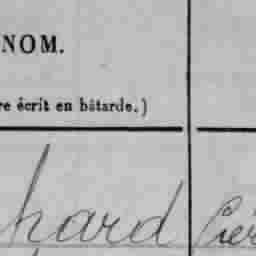 NOM.
re écrit en bâtarde.)
hard Pier